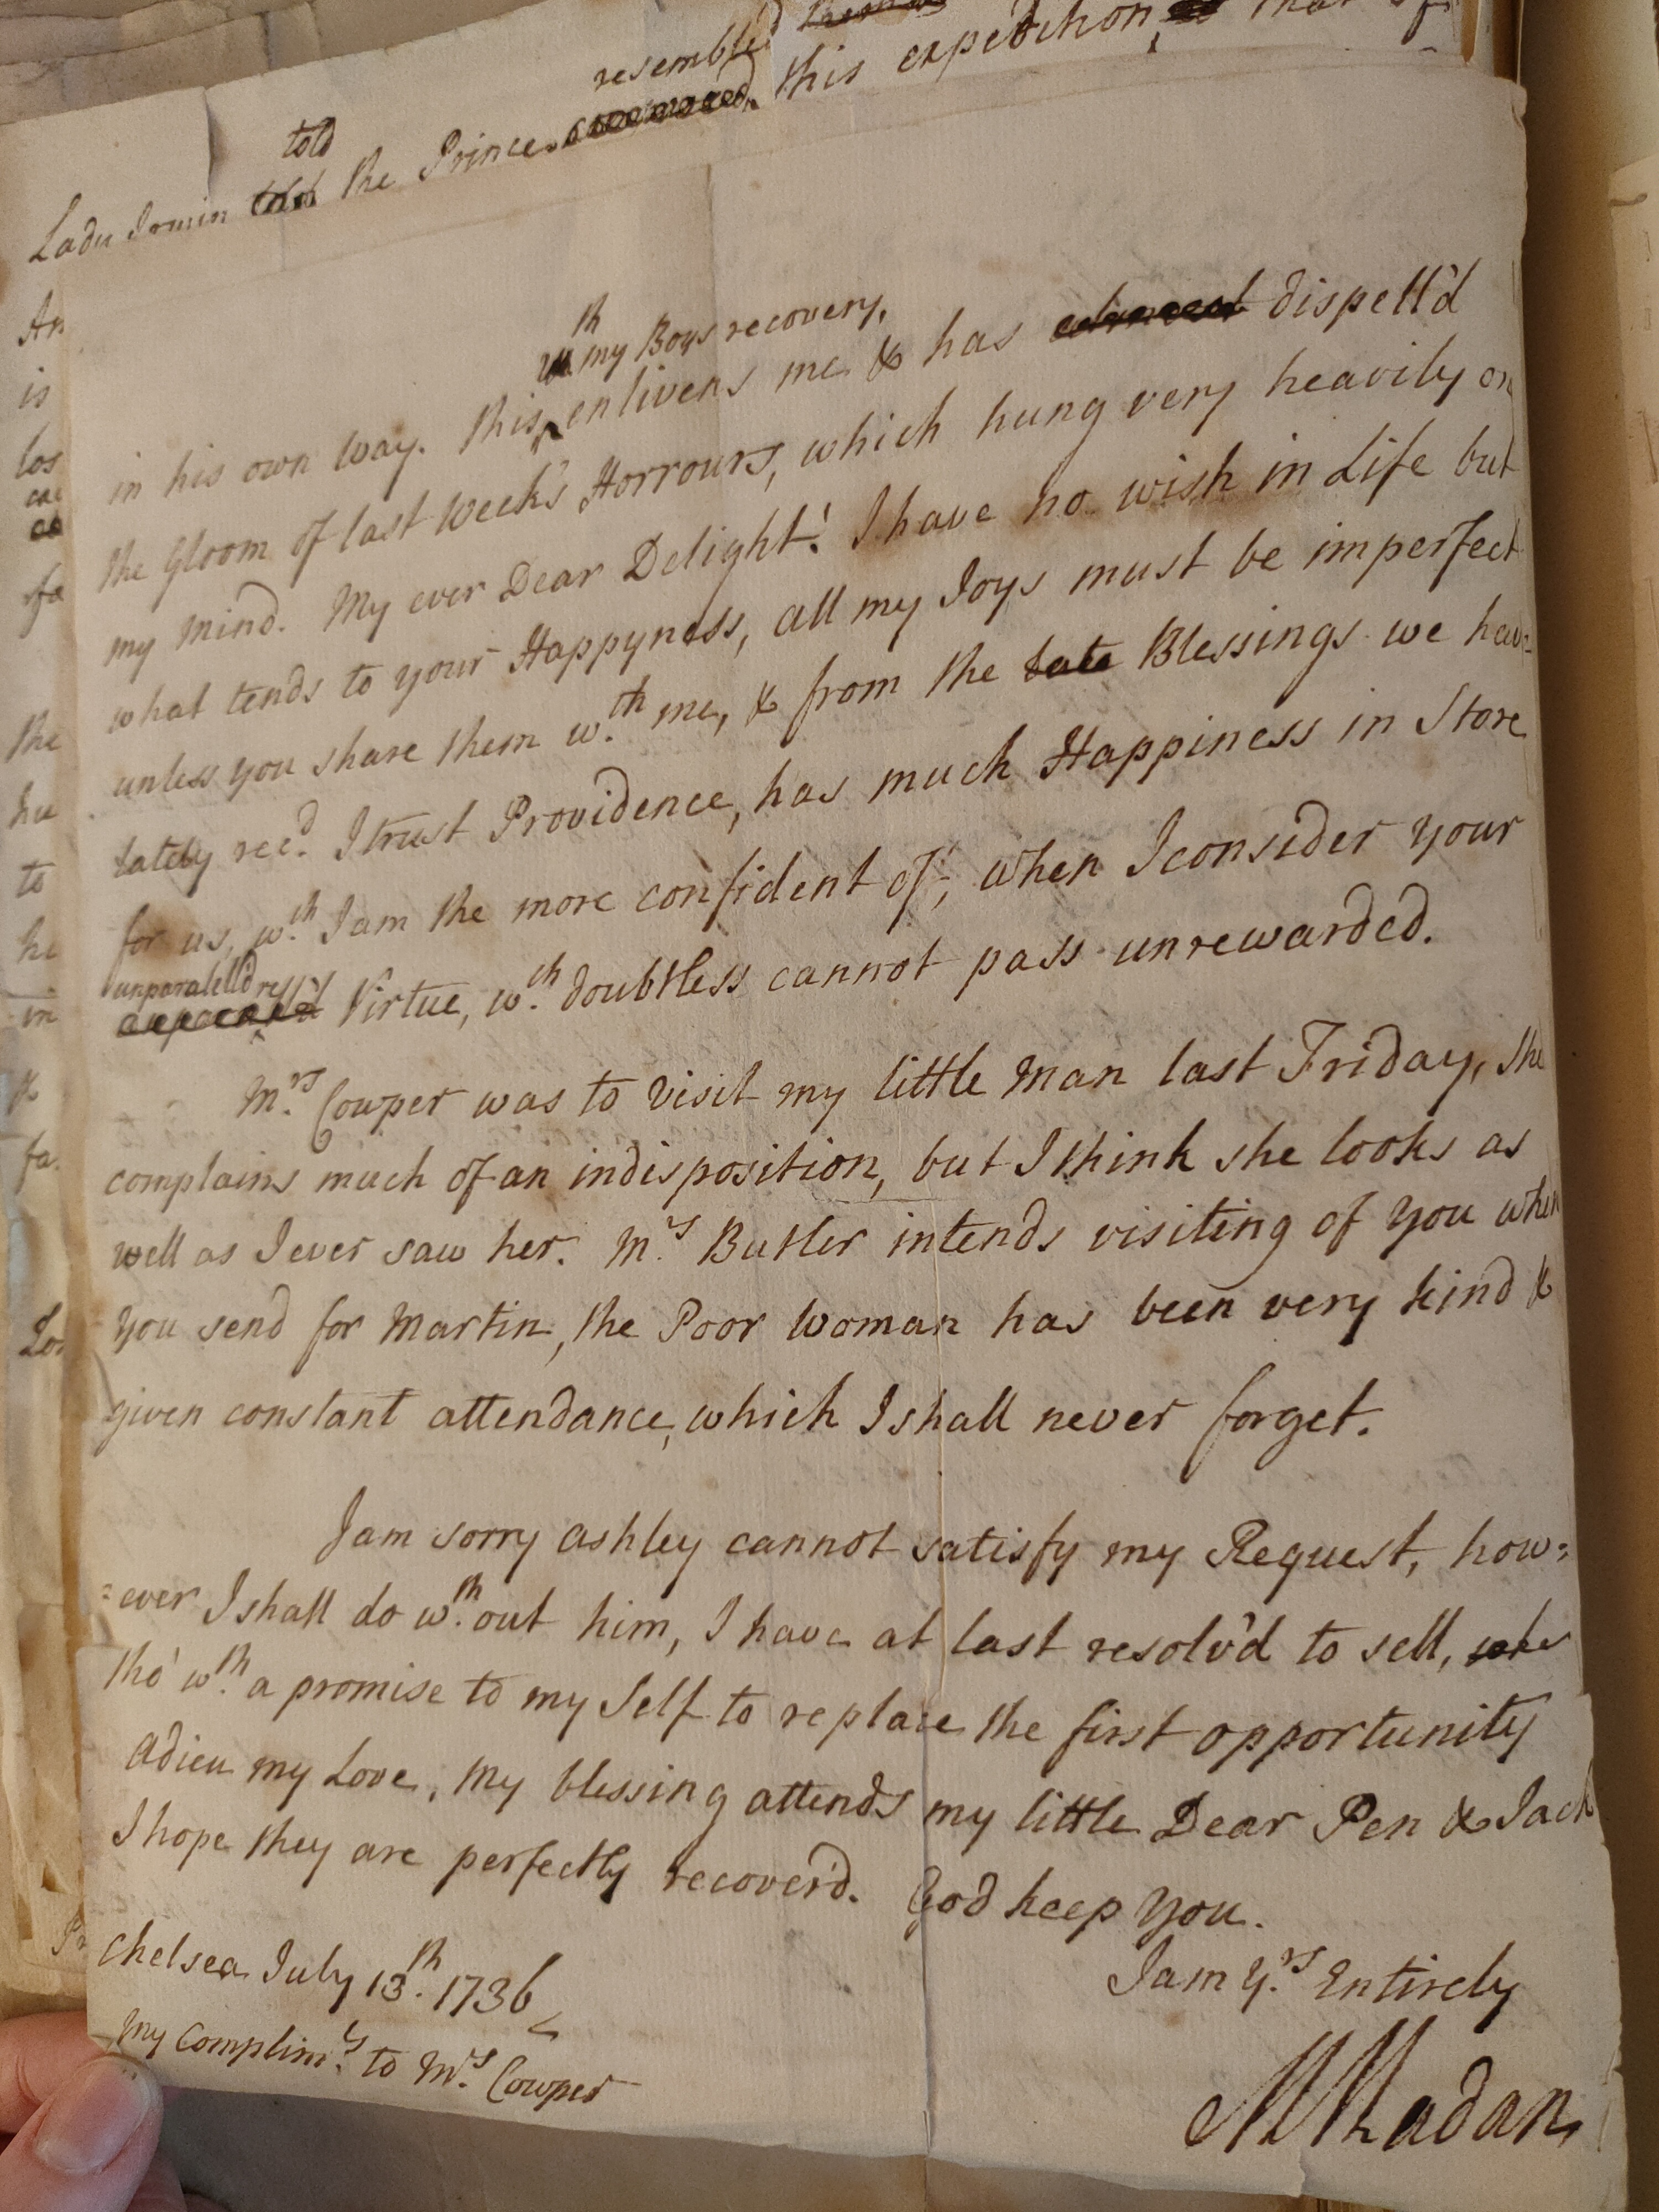 resembled
told
Lady Irwin the Prince this expedition, that of
in his own way. this, wth my Boys recovery, enlivens me & has dispell'd
the Gloom of last week's Horrours, which hung very heavily on
my mind. My ever Dear Delight! I have no wish in Life but
what tends to your Happyness, all my Joys must be imperfect
unless you share them w.th me, & from the late Blessings we have
lately rec.d I trust Providence, has much Happiness in Store
for us, w.ch I am the more confident of, when I consider your
unparalell'd Virtue, w.ch doubtless cannot pass unrewarded.
M.rs Cowper was to visit my little Man last Friday, she
complains much of an indisposition, but I think she looks as
well as I ever saw her. M.rs Butler intends visiting of you when
you send for Martin, the Poor Woman has been very kind &
given constant attendance, which I shall never forget.
I am sorry Ashley cannot satisfy my Request, how=
=ever I shall do w.th out him, I have at last resolv'd to sell,
tho' w.th a promise to my Self to replace the first opportunity
Adieu my Love, My blessing attends my little Dear Pen & Jack
I hope they are perfectly recover'd. God keep you.
I am Y.rs Entirely
Chelsea July 13.th 1736
MMadan
My Complim.ts to M.rs Cowper
An
is
los
the
to
he
in
&